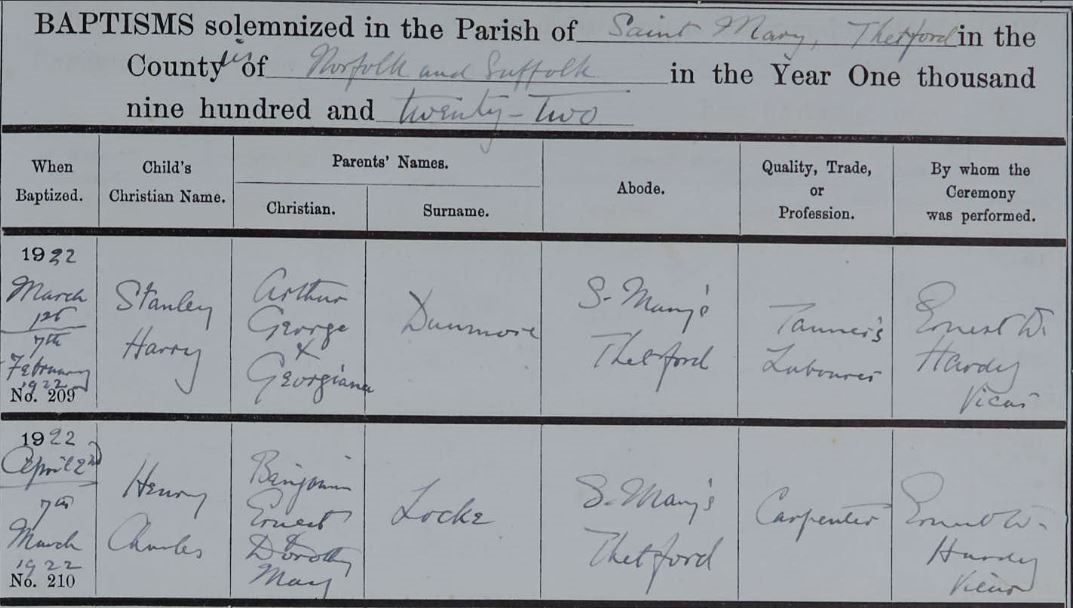 BAPTISMS solemnized in the Parish of Saint Mary, Thetford in the
County ies of Norfolk and Suffolk in the Year One thousand
nine hundred and twenty-two
When Baptized.
Child's Christian Name.
Parents' Names.
Christian.
Surname.
Abode.
Quality, Trade, or Profession.
By whom the Ceremony was performed.
1922
March
1st
7th
February
1922
No. 209
Stanley
Harry
Arthur
George
&
Georgiana
Dunmore
S. Mary's
Thetford
Tanner's
Labourer
Ernest W.
Hardy
Vicar
1922
April 2nd
7th
March
1922
No. 210
Henry
Charles
Benjamin
Ernest
&
Dorothy
May
Locke
S. Mary's
Thetford
Carpenter
Ernest W.
Hardy
Vicar